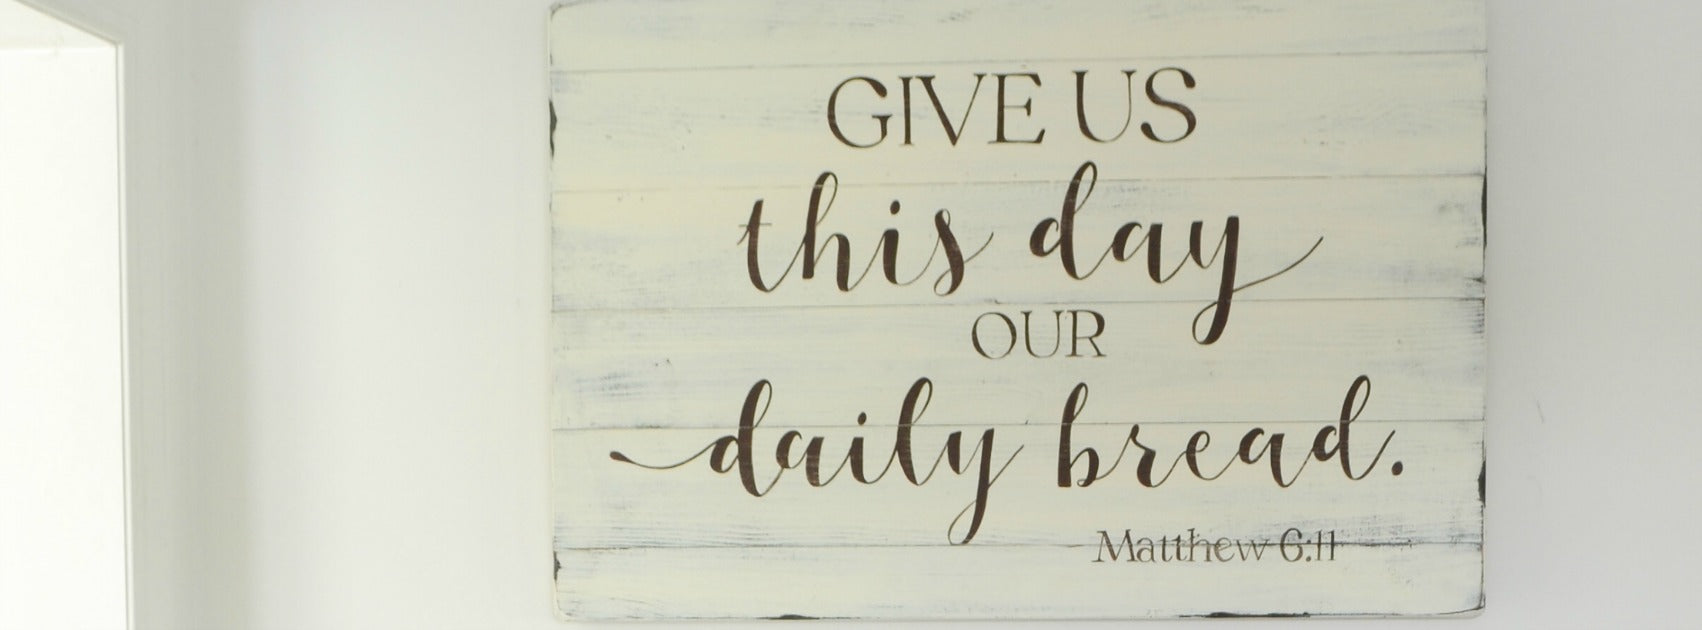 GIVE US
this day
OUR
daily bread.
Matthew 6:11